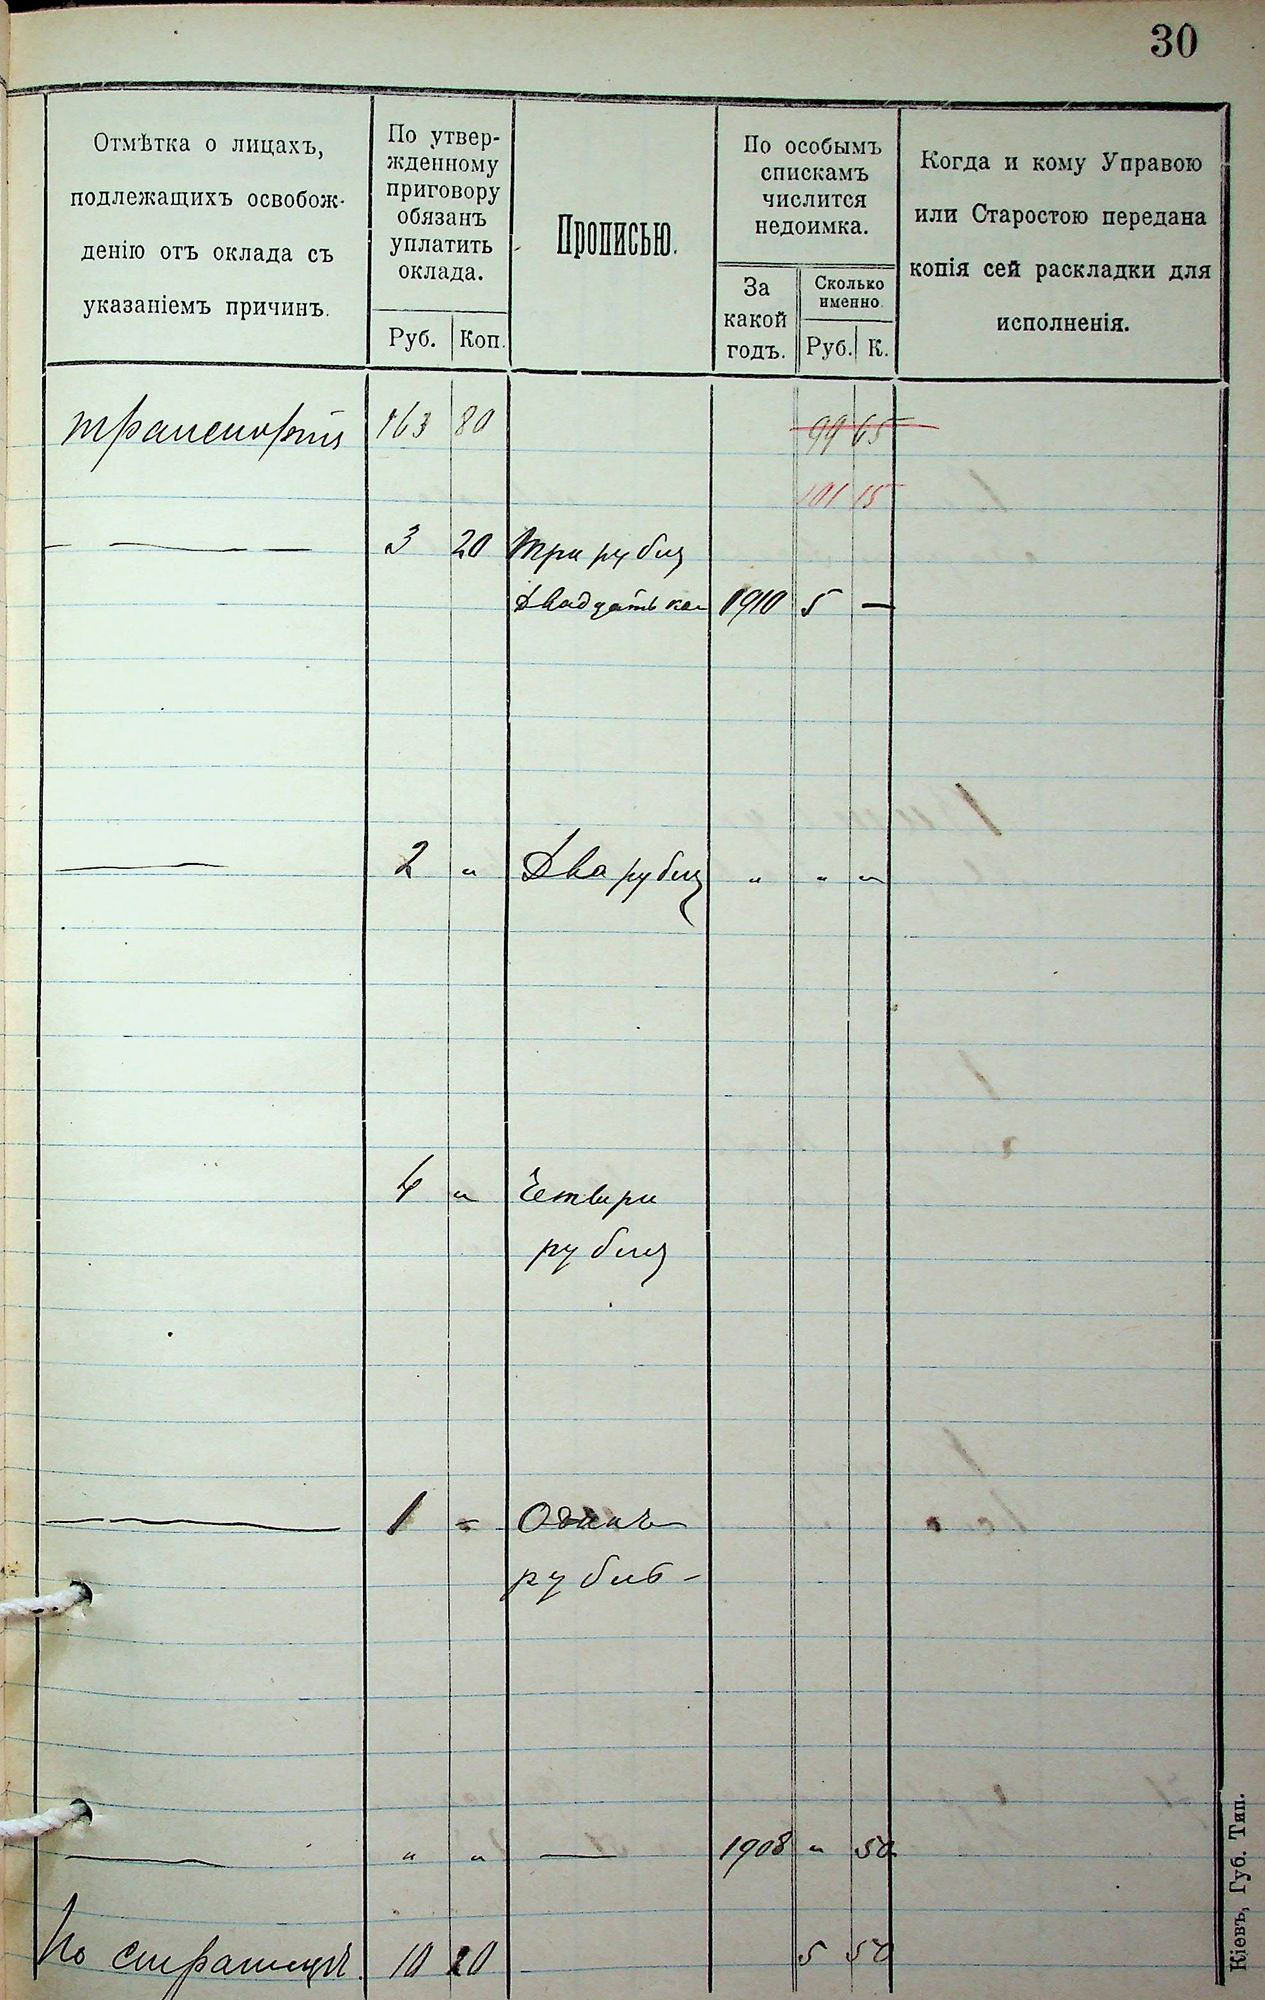 30
Отмѣтка о лицахъ,
подлежащихъ освобож-
денію отъ оклада съ
указаніемъ причинъ.
По утвер-
жденному
приговору
обязанъ
уплатить
оклада.
Руб. Коп.
Прописью.
По особымъ
спискамъ
числится
недоимка.
За
какой
годъ.
Сколько
именно
Руб. К.
Когда и кому Управою
или Старостою передана
копія сей раскладки для
исполненія.
транспортъ 163 80 99 65
101 15
— 3 20 три рубля
двадцать ко 1910 5 —
— 2 " Два рубля " " "
4 " Четыри
рубля
— 1 " Одинъ
рубль
— " " — 1908 " 50
По страницѣ 10 20 5 50
Кіевъ, Губ. Тип.